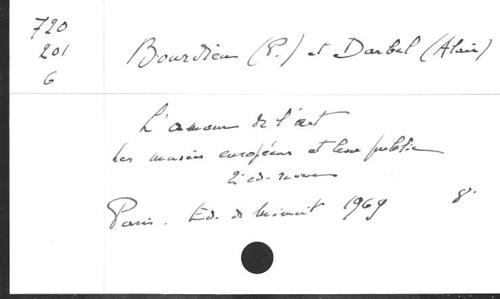 720
201
6
Bourdieu (P.) et Darbel (Alain)
L'amour de l'art
Les musées européens et leur public
2e ed.
Paris. Ed. de Minuit 1969 8°